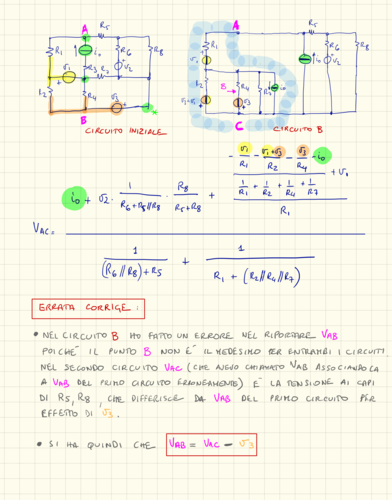 A
R5
R1
i0
R6
R8
R3
V2
V1
R7
R2
R4
V3
B
CIRCUITO INIZIALE
A
R5
R1
V1
i0
R6
R8
V2
R2
B
R4
R7
i0
V1
V3
C
CIRCUITO B
i0 + V2 · 1 / (R6 + R5//R8) · R8 / (R5+R8) +
- V1/R1 - (V1+V3)/R2 - V3/R4 - i0
1/R1 + 1/R2 + 1/R4 + 1/R7
+ V1
R1
VAC =
1 / ((R6//R8)+R5) + 1 / (R1 + (R2//R4//R7))
ERRATA CORRIGE :
• NEL CIRCUITO B HO FATTO UN ERRORE NEL RIPORTARE VAB
POICHÉ IL PUNTO B NON É IL MEDESIMO PER ENTRAMBI I CIRCUITI.
NEL SECONDO CIRCUITO VAC (CHE AVEVO CHIAMATO VAB ASSOCIANDOLA
A VAB DEL PRIMO CIRCUITO ERRONEAMENTE) É LA TENSIONE AI CAPI
DI R5, R8, CHE DIFFERISCE DA VAB DEL PRIMO CIRCUITO PER
EFFETTO DI V3.
• SI HA QUINDI CHE VAB = VAC - V3